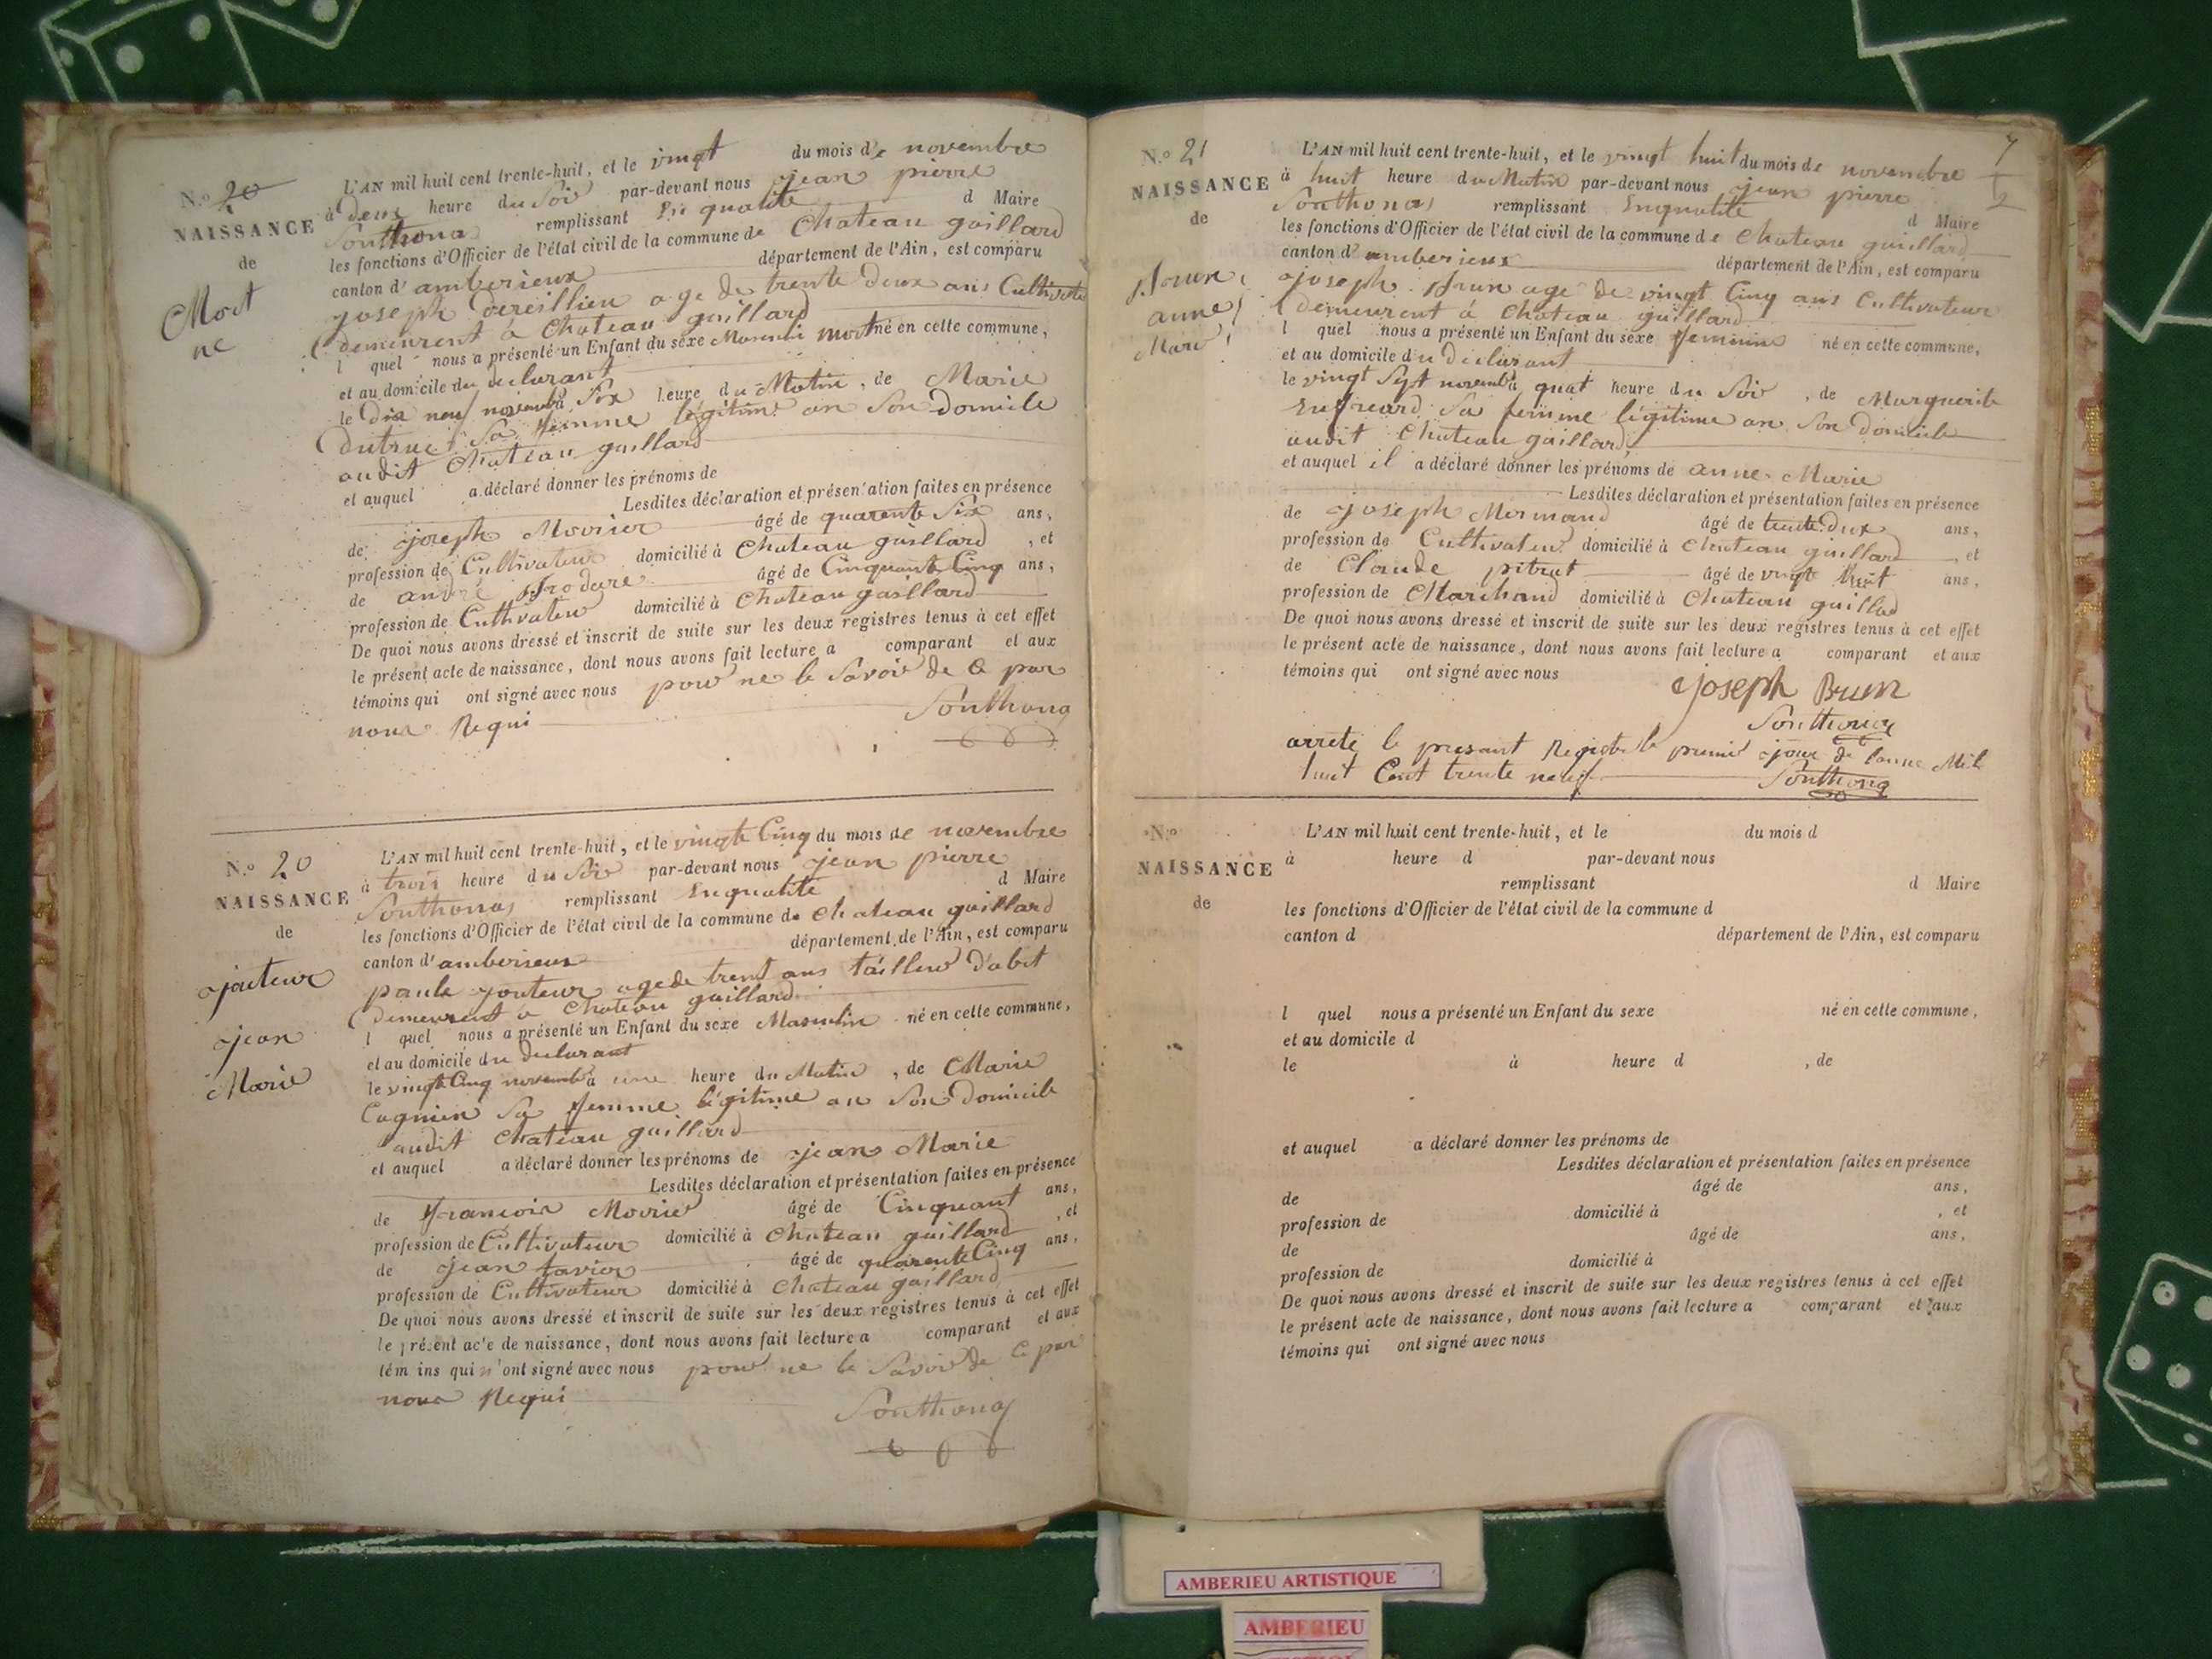 N.° 20
NAISSANCE
de
Mort
né
L'AN mil huit cent trente-huit, et le vingt du mois de novembre
à deux heure du Soir par-devant nous jean pierre
Southonas remplissant En qualité d Maire
les fonctions d'Officier de l'état civil de la commune de Chateau gaillard
canton d'amberieux département de l'Ain, est comparu
joseph age de trente deux ans Cultivateur
demeurent à Chateau gaillard
l quel nous a présenté un Enfant du sexe Masculin mort né en cette commune,
et au domicile du declarant
le Dix neuf novembre à Six heure du Matin, de Marie
dutruc Sa femme légitime an Son Domicile
audit Chateau gaillard
et auquel a déclaré donner les prénoms de
Lesdites déclaration et présentation faites en présence
de joseph Movrier âgé de quarente Six ans,
profession de Cultivateur domicilié à Chateau gaillard, et
de andré âgé de Cinquante Cinq ans,
profession de Cultivateur domicilié à Chateau gaillard
De quoi nous avons dressé et inscrit de suite sur les deux registres tenus à cet effet
le présent acte de naissance, dont nous avons fait lecture a comparant et aux
témoins qui ont signé avec nous pour ne le Savoir de Ce par
nous Requi
Southonas
N.° 20
NAISSANCE
de
jouteur
jean
Marie
L'AN mil huit cent trente-huit, et le vingte Cinq du mois de novembre
à trois heure du Soir par-devant nous jean pierre
Southonas remplissant Enqualité d Maire
les fonctions d'Officier de l'état civil de la commune de Chateau gaillard
canton d'amberieux département de l'Ain, est comparu
paule jouteur age de trent ans tailleur d'abit
demeurent a Chateau gaillard
l quel nous a présenté un Enfant du sexe Masculin né en cette commune,
et au domicile du declarant
le vingte Cinq novembre à une heure du Matin, de Marie
Cagnin Sa femme légitime an Son Domicile
audit Chateau gaillard
et auquel a déclaré donner les prénoms de jean Marie
Lesdites déclaration et présentation faites en présence
de francois Movrier âgé de Cinquant ans,
profession de Cultivateur domicilié à Chateau gaillard, et
de jean favier âgé de quarente Cinq ans,
profession de Cultivateur domicilié à Chateau gaillard
De quoi nous avons dressé et inscrit de suite sur les deux registres tenus à cet effet
le présent acte de naissance, dont nous avons fait lecture a comparant et aux
témoins qui n'ont signé avec nous pour ne le Savoir de Ce par
nous Requi
Southonas
7
N.° 21
NAISSANCE
de
brun
anne
Marie
L'AN mil huit cent trente-huit, et le vingt huit du mois de novembre
à huit heure du Matin par-devant nous jean pierre
Southonas remplissant Enqualité d Maire
les fonctions d'Officier de l'état civil de la commune de Chateau gaillard
canton d'amberieux département de l'Ain, est comparu
joseph brun age de vingt Cinq ans Cultivateur
demeurent à Chateau gaillard
l quel nous a présenté un Enfant du sexe feminin né en cette commune,
et au domicile du declarant
le vingt Sept novembre à quat heure du Soir, de Marguerite
Sa femme légitime an Son Domicile
audit Chateau gaillard
et auquel il a déclaré donner les prénoms de anne Marie
Lesdites déclaration et présentation faites en présence
de joseph Mermand âgé de trente deux ans,
profession de Cultivateur domicilié à Chateau gaillard, et
de Claude pitrat âgé de vingt huit ans,
profession de Marchand domicilié à Chateau gaillard
De quoi nous avons dressé et inscrit de suite sur les deux registres tenus à cet effet
le présent acte de naissance, dont nous avons fait lecture a comparant et aux
témoins qui ont signé avec nous
joseph Brun
Southonas
arreté le presant Registre le premier jour de lanne Mil
huit Cent trente neuf
Southonas
N.°
NAISSANCE
de
L'AN mil huit cent trente-huit, et le du mois d
à heure d par-devant nous
remplissant d Maire
les fonctions d'Officier de l'état civil de la commune d
canton d département de l'Ain, est comparu
l quel nous a présenté un Enfant du sexe né en cette commune,
et au domicile d
le à heure d, de
et auquel a déclaré donner les prénoms de
Lesdites déclaration et présentation faites en présence
de âgé de ans,
profession de domicilié à, et
de âgé de ans,
profession de domicilié à
De quoi nous avons dressé et inscrit de suite sur les deux registres tenus à cet effet
le présent acte de naissance, dont nous avons fait lecture a comparant et aux
témoins qui ont signé avec nous
AMBERIEU ARTISTIQUE
AMBERIEU